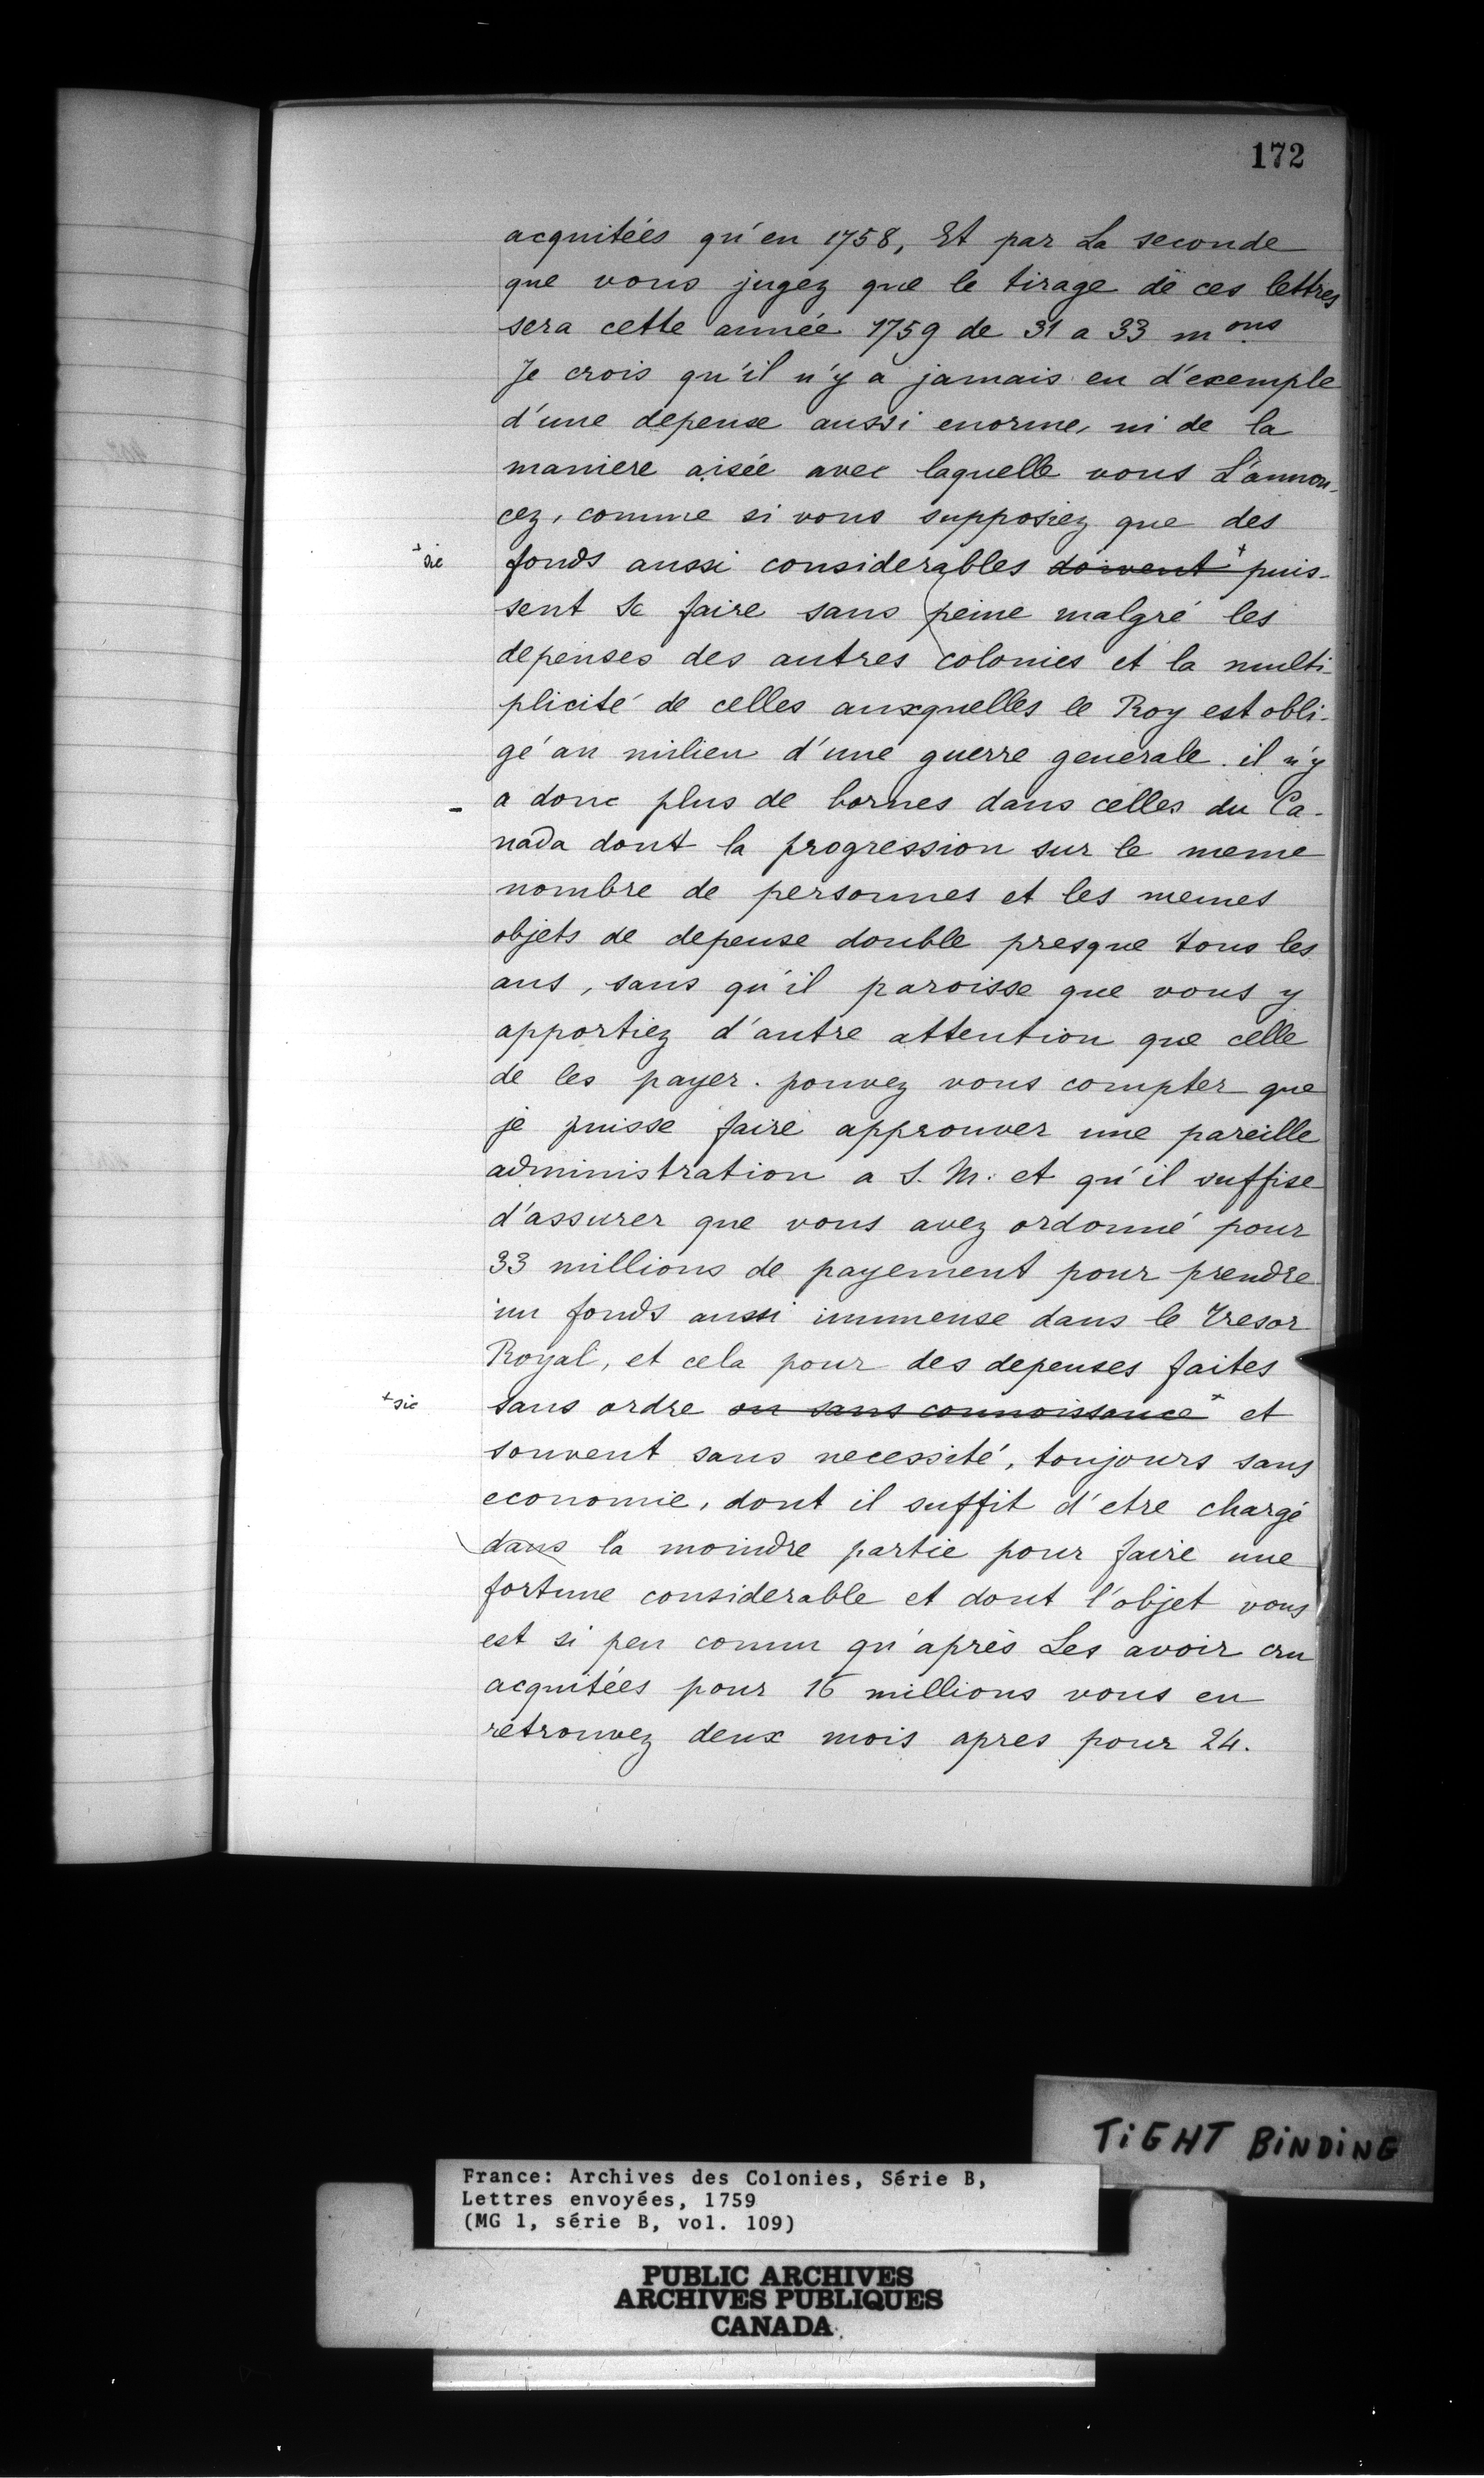 172
acquitées qu'en 1758, Et par La seconde
que vous jugez que le tirage de ces lettres
sera cette année 1759 de 31 a 33 mons
Je crois qu'il n'y a jamais eu d'exemple
d'une depense aussi enorme, ni de la
maniere aisée avec laquelle vous L'annon-
cez, comme si vous supposiez que des
+ sic fonds aussi considerables doivent + puis-
sent Se faire sans peine malgré les
depenses des autres colonies et la multi-
plicité de celles auxquelles le Roy est obli-
gé au milieu d'une guerre generale. il n'y
- a donc plus de bornes dans celles du Ca-
nada dont la progression sur le meme
nombre de personnes et les memes
objets de depense double presque tous les
ans, sans qu'il paroisse que vous y
apportiez d'autre attention que celle
de les payer. pouvez vous compter que
je puisse faire approuver une pareille
administration a S. M. et qu'il suffise
d'assurer que vous avez ordonné pour
33 millions de payement pour prendre
un fonds aussi immense dans le Tresor
Royal, et cela pour des depenses faites
+ sic sans ordre ou sans connoissance + et
souvent sans necessité, toujours sans
economie, dont il suffit d'etre chargé
dans la moindre partie pour faire une
fortune considerable et dont l'objet vous
est si peu connu qu'après Les avoir cru
acquitées pour 16 millions vous en
retrouvez deux mois apres pour 24.
TiGHT BiNDiNG
France: Archives des Colonies, Série B,
Lettres envoyées, 1759
(MG 1, série B, vol. 109)
PUBLIC ARCHIVES
ARCHIVES PUBLIQUES
CANADA